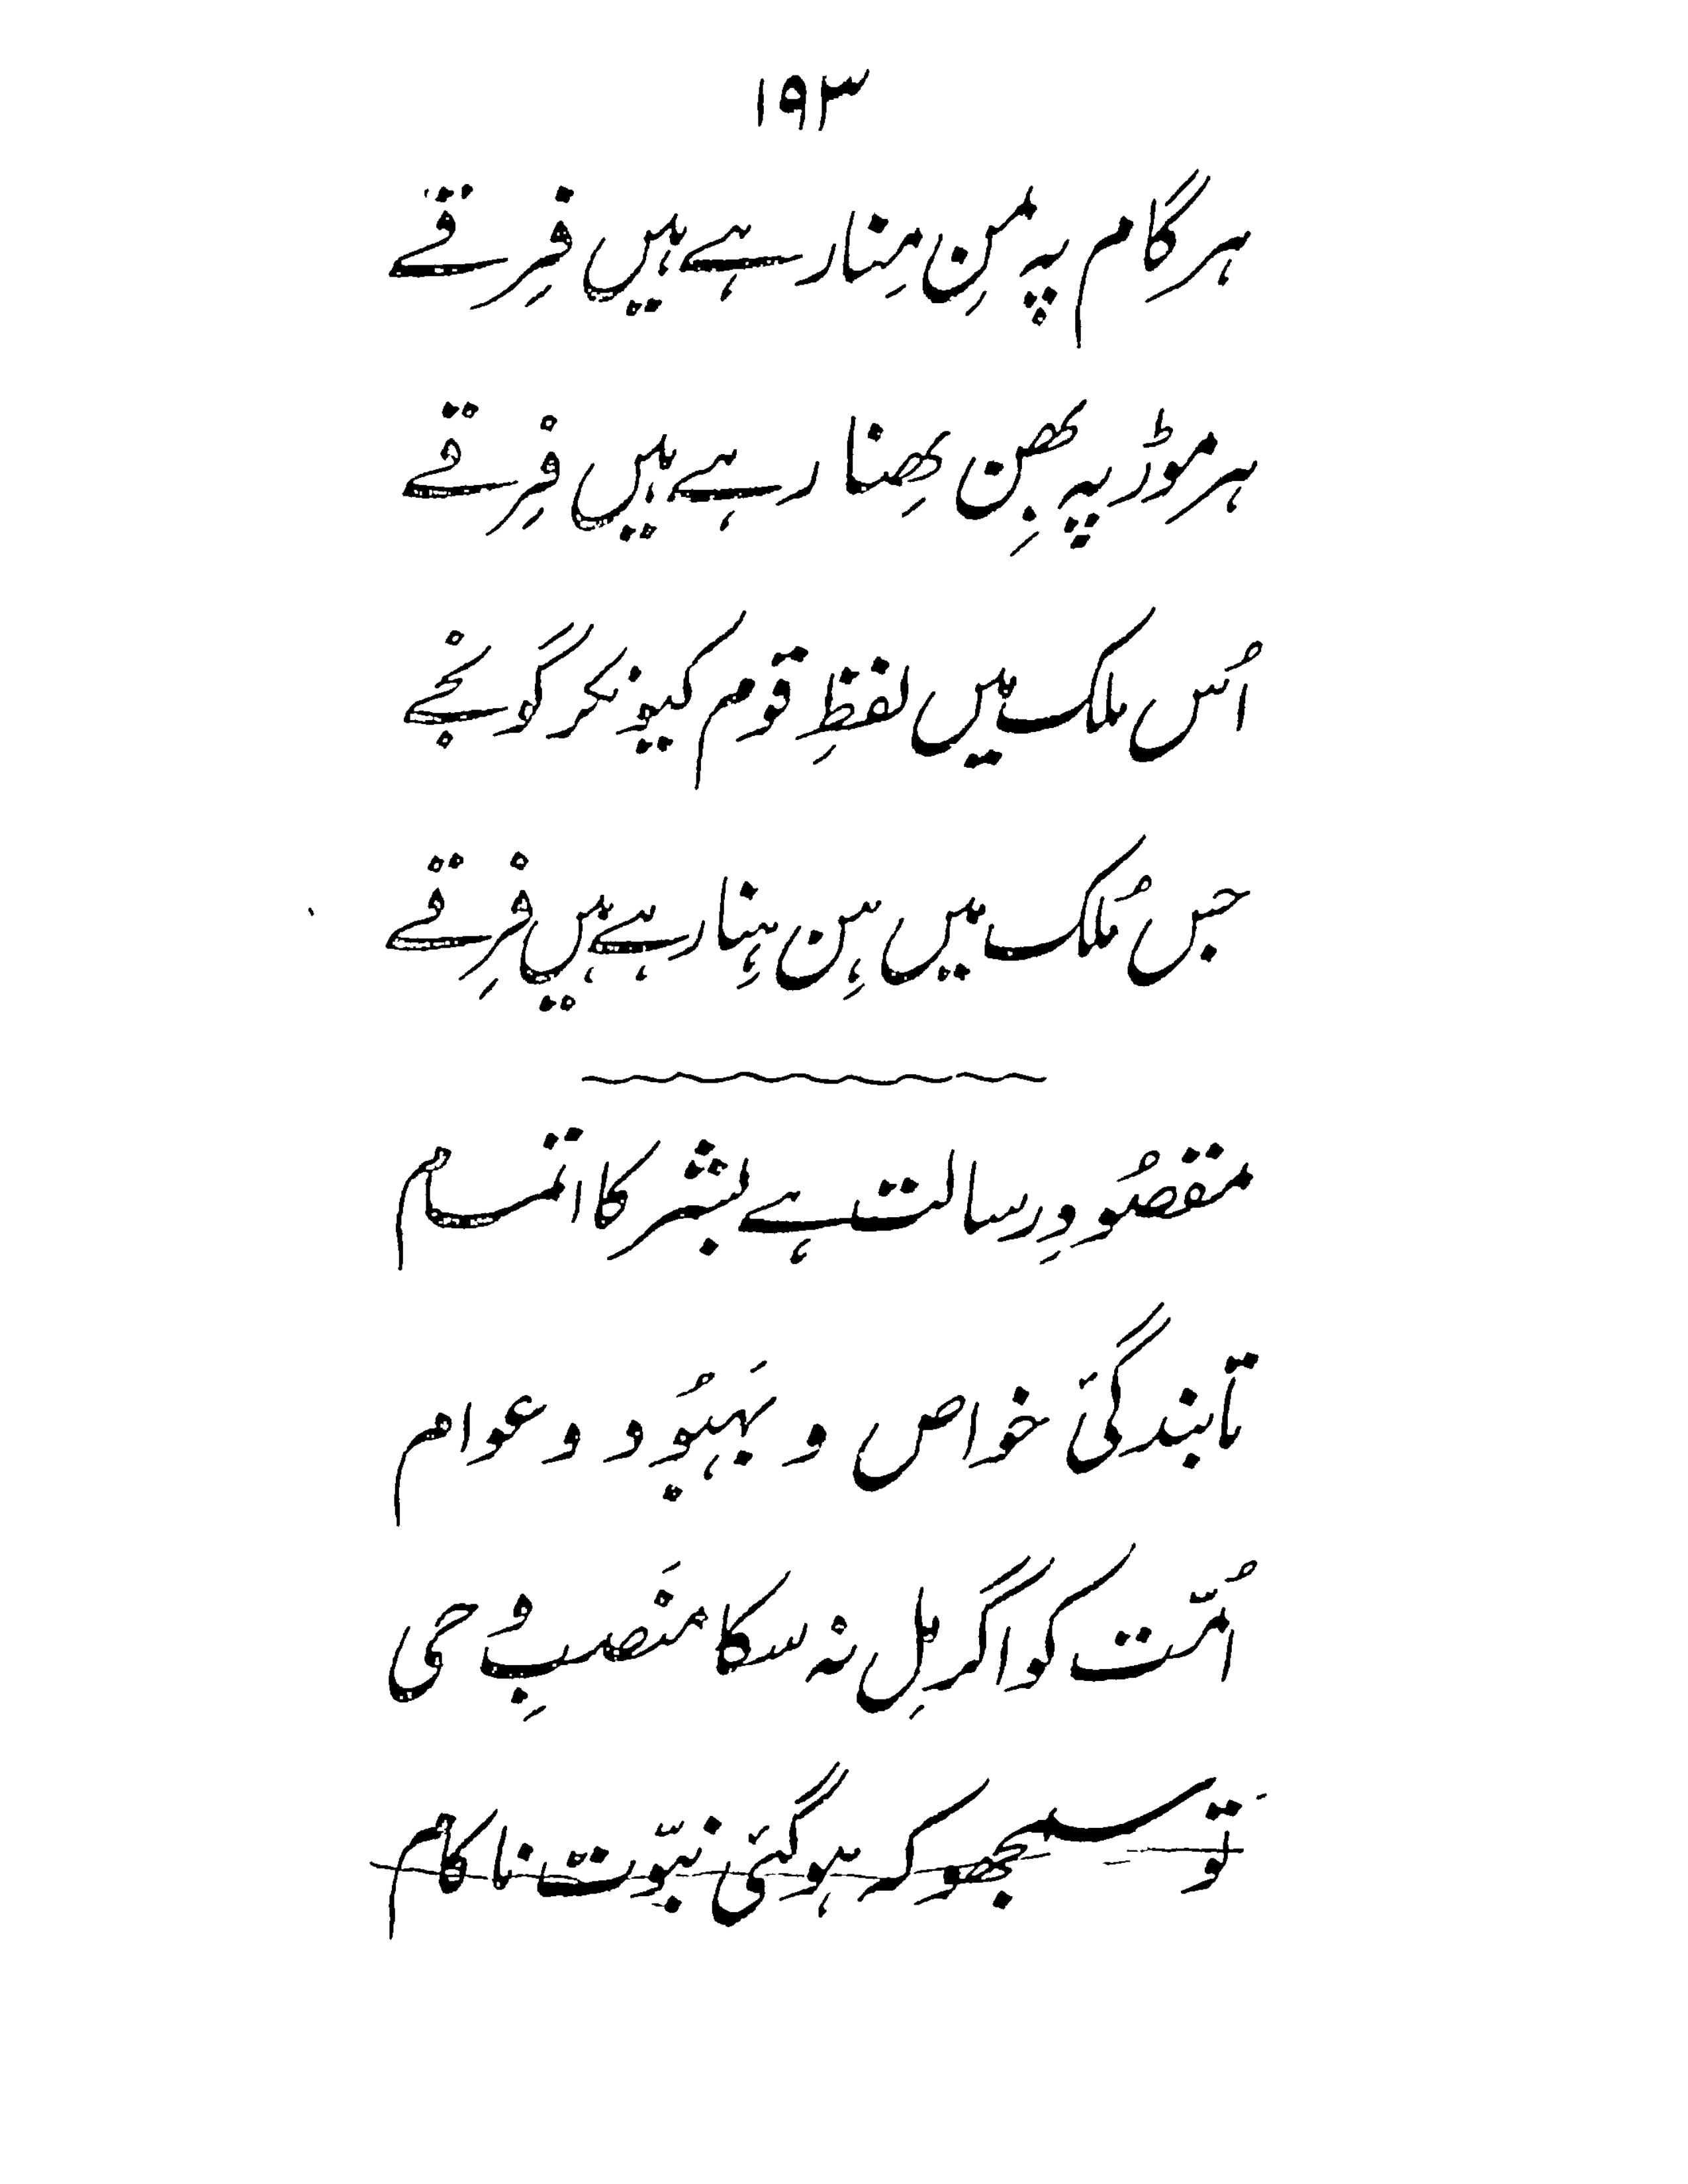 ۱۹۳
ہر گام پہ مِن مِنا رہے ہیں فِرقے
ہر موڑ پہ بھِن بھِنا رہے ہیں فِرقے
اُس ملک میں لفظِ قوم کیونکر گونجے
جس مُلک میں ہِن ہِنا رہے ہیں فِرقے
مقصُودِ رسالت ہے بشر کا اتمام
تابندگیٔ خواص و بَہبُود و عوام
اُمّت کو اگر مِل نہ سکا مَنصبِ وحی
تو سمجھو کہ ہو گئی نبّوت ناکام